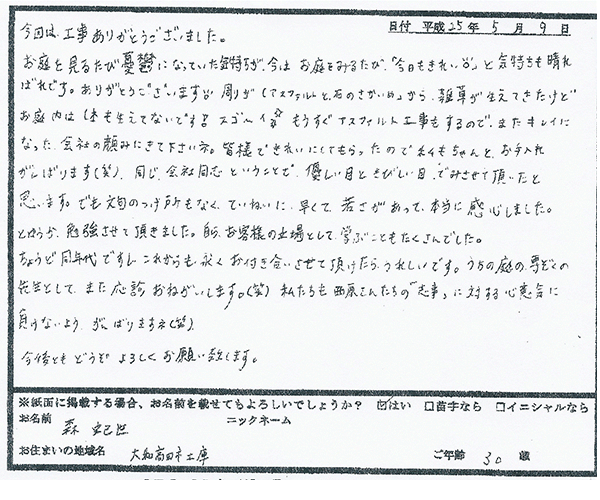 日付 平成25年5月9日
今回は、工事ありがとうございました。
お庭を見るたび憂鬱になっていた気持ちが、今はお庭をみるたび、「今日もきれい」と気持ちも晴れ
ばれです。ありがとうございます 周りが(アスファルトと、石のさかいめ)から、雑草が生えてきたけど
お庭内は1本も生えてないです!! スゴーイ もうすぐアスファルト工事もするので、またキレイに
なった、会社の顔みにきて下さいネ。皆様できれいにしてもらったので私もちゃんと、お手入れ
がんばります(笑)。同じ、会社同志ということで、優しい目ときびしい目、でみさせて頂いたと
思います。でも文句のつけ所もなく、ていねいに、早くて、若さがあって、本当に感心しました。
というか、勉強させて頂きました。自ら、お客様の立場として、学ぶこともたくさんでした。
ちょうど同年代ですし、これからも永くお付き合いさせて頂けたら、うれしいです。うちの庭の、専ぞくの
先生として、また応診おねがいします。(笑) 私たちも西原さんたちの「志事」に対する心意気に
負けないよう、がんばりますネ(笑)
今後ともどうぞよろしくお願い致します。
※紙面に掲載する場合、お名前を載せてもよろしいでしょうか? ☑はい □苗字なら □イニシャルなら
お名前 森 ニックネーム
お住まいの地域名 大和高田市土庫 ご年齢 30 歳